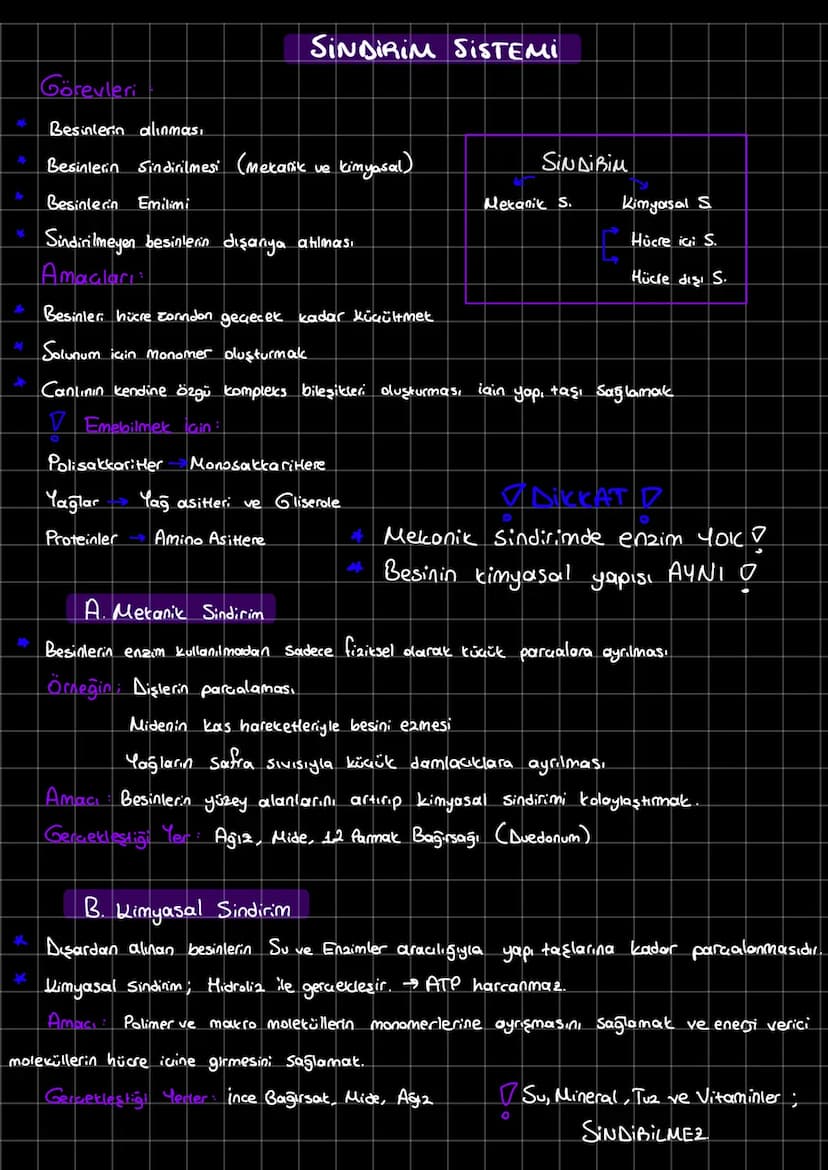 SİNDİRİM SİSTEMİ
Görevleri:
* Besinlerin alınması
* Besinlerin Sindirilmesi (Mekanik ve kimyasal)
* Besinlerin Emilimi
* Sindirilmeyen besinlerin dışarıya atılması
SİNDİRİM
Mekanik S. Kimyasal S.
Hücre içi S.
Hücre dışı S.
Amaçları:
* Besinleri hücre zarından geçecek kadar küçültmek
* Solunum için monomer oluşturmak
* Canlının kendine özgü kompleks bileşikleri oluşturması için yapı taşı sağlamak
! Emebilmek için:
Polisakkaritler → Monosakkaritlere
Yağlar → Yağ asitleri ve Gliserole
Proteinler → Amino Asitlere
! DİKKAT !
* Mekanik sindirimde enzim YOK !
* Besinin kimyasal yapısı AYNI !
A. Mekanik Sindirim
* Besinlerin enzim kullanılmadan sadece fiziksel olarak küçük parçalara ayrılması
Örneğin; Dişlerin parçalaması
Midenin kas hareketleriyle besini ezmesi
Yağların safra sıvısıyla küçük damlacıklara ayrılması
Amacı: Besinlerin yüzey alanlarını artırıp kimyasal sindirimi kolaylaştırmak.
Gerçekleştiği Yer: Ağız, Mide, 12 Parmak Bağırsağı (Duedonum)
B. Kimyasal Sindirim
* Dışardan alınan besinlerin Su ve Enzimler aracılığıyla yapı taşlarına kadar parçalanmasıdır.
* Kimyasal sindirim; Hidroliz ile gerçekleşir. → ATP harcanmaz.
Amacı: Polimer ve makro moleküllerin monomerlerine ayrışmasını sağlamak ve enerji verici
moleküllerin hücre içine girmesini sağlamak.
Gerçekleştiği Yerler: İnce Bağırsak, Mide, Ağız
! Su, Mineral, Tuz ve Vitaminler;
SİNDİRİLMEZ